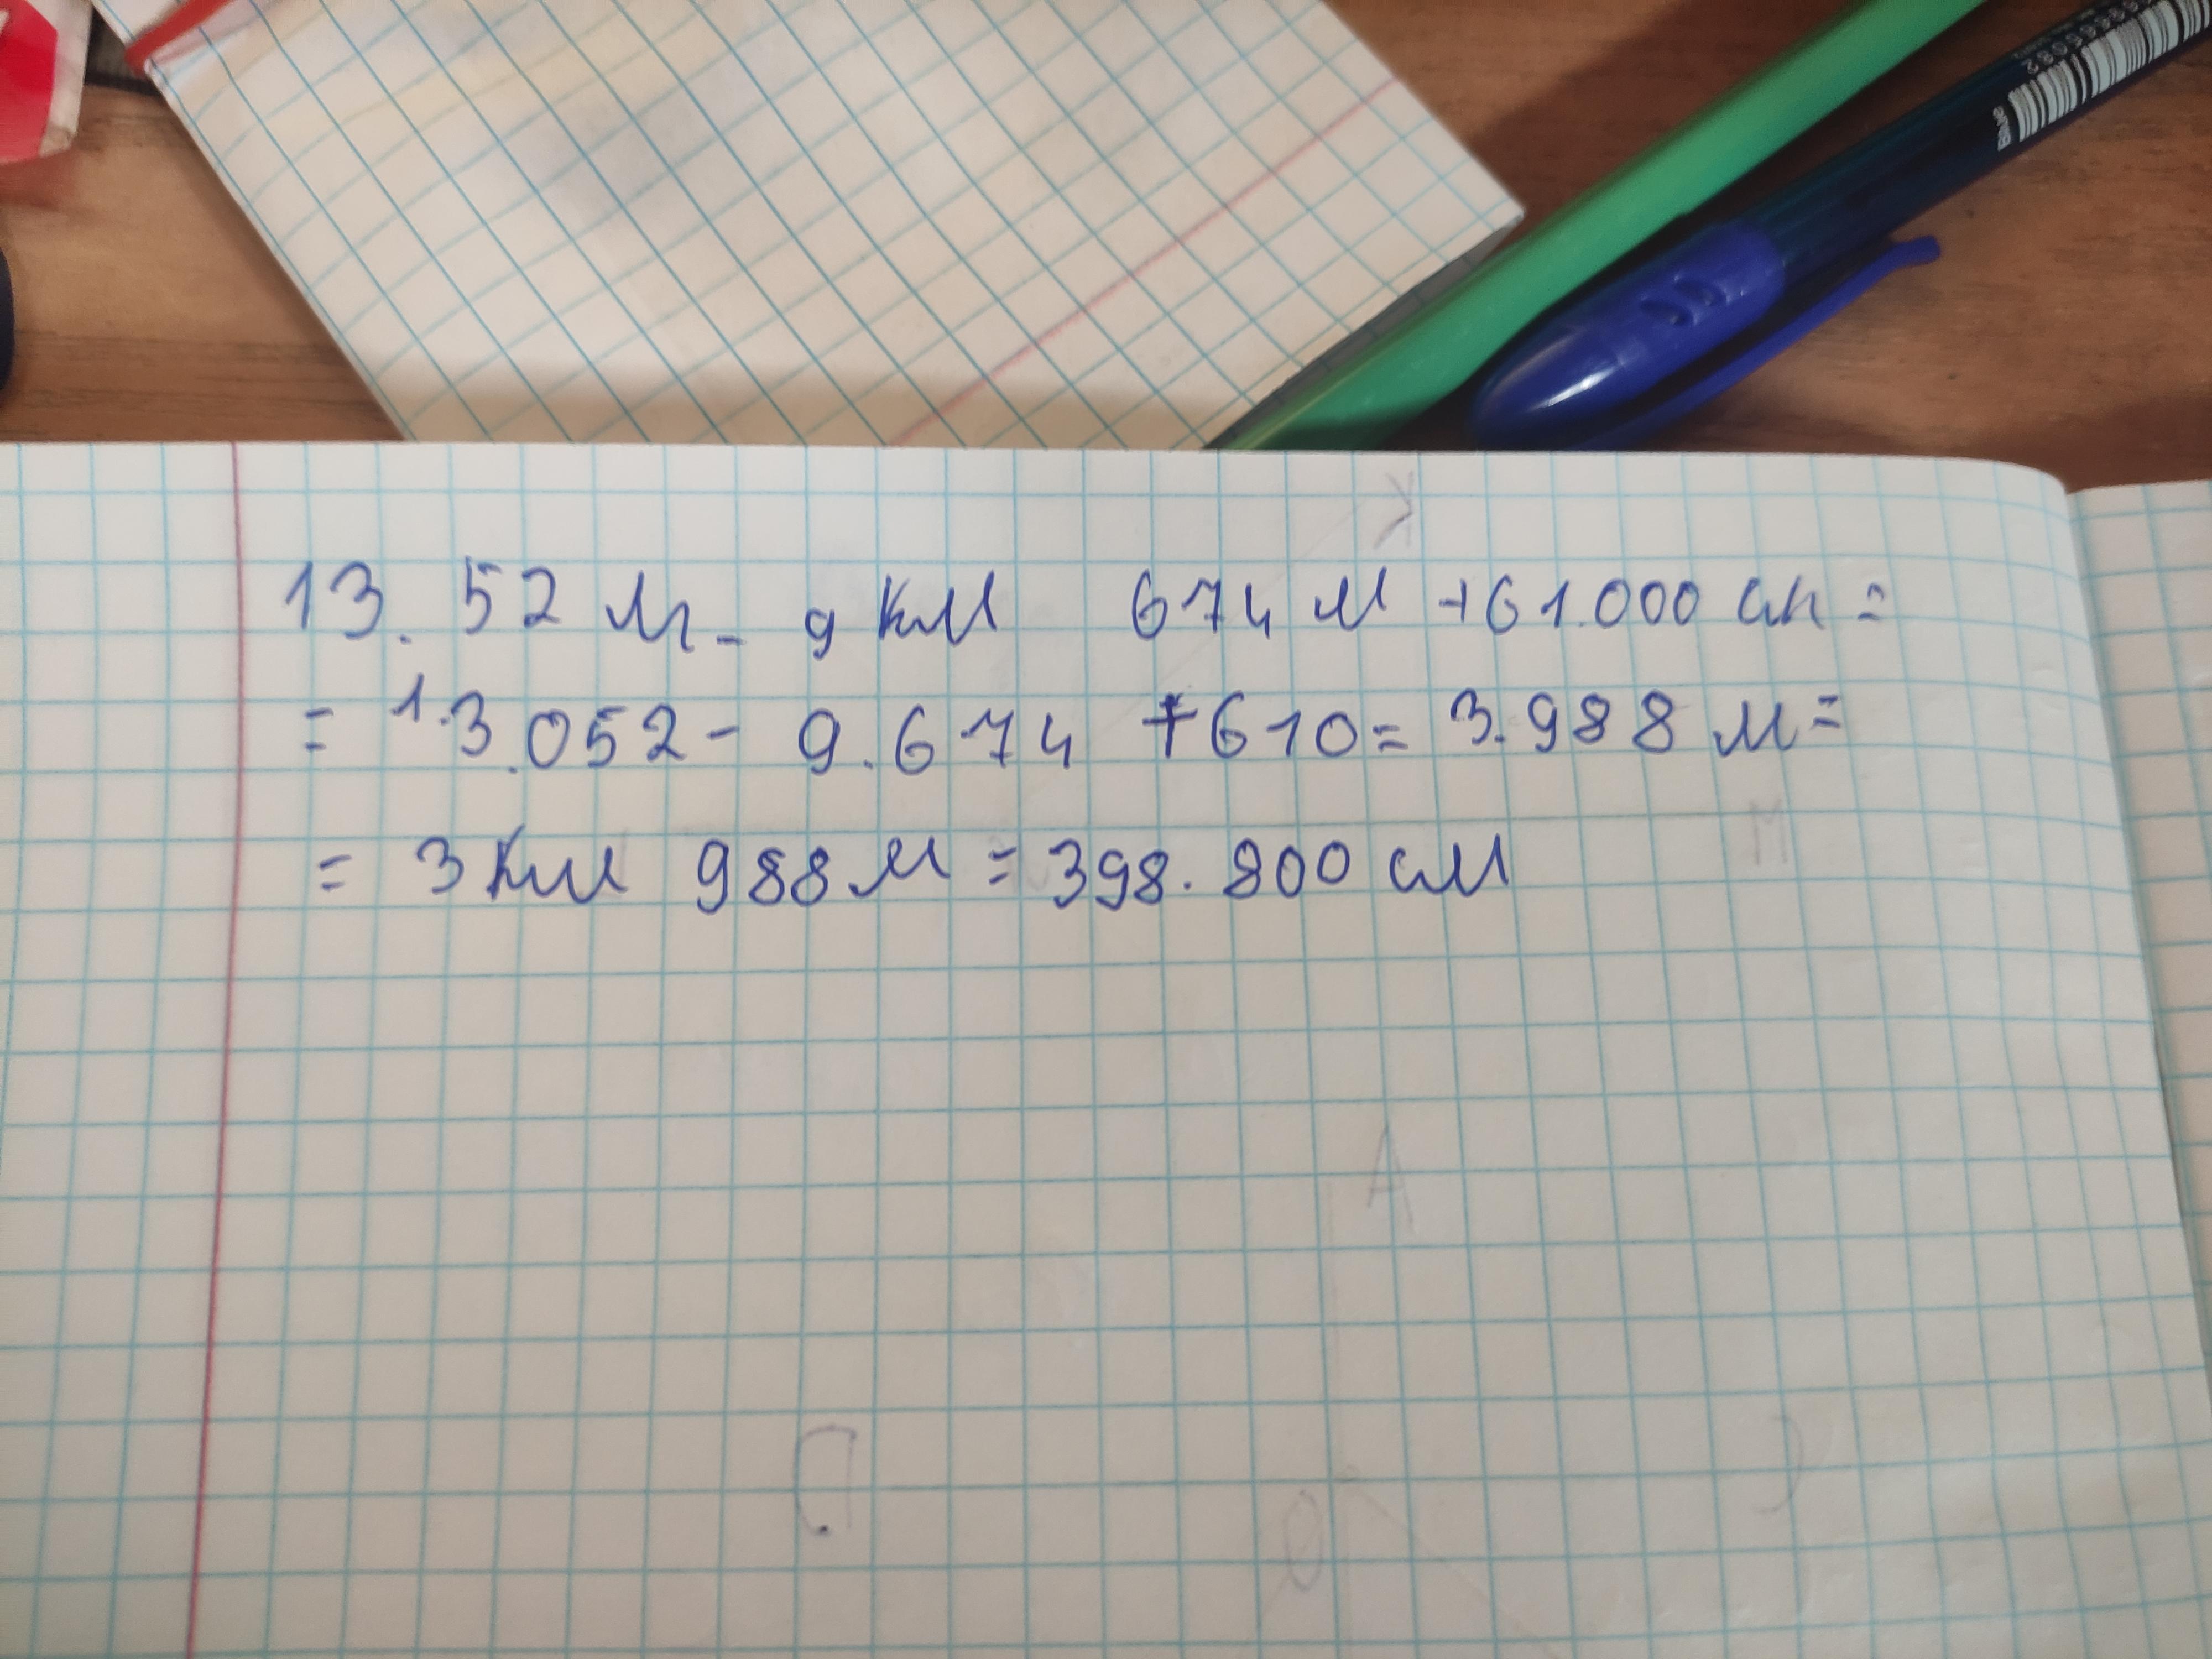 Blue
13. 52 м - 9 км 674 м + 61.000 см =
= 13.052 - 9.674 + 610 = 3.988 м =
= 3 км 988 м = 398.800 см